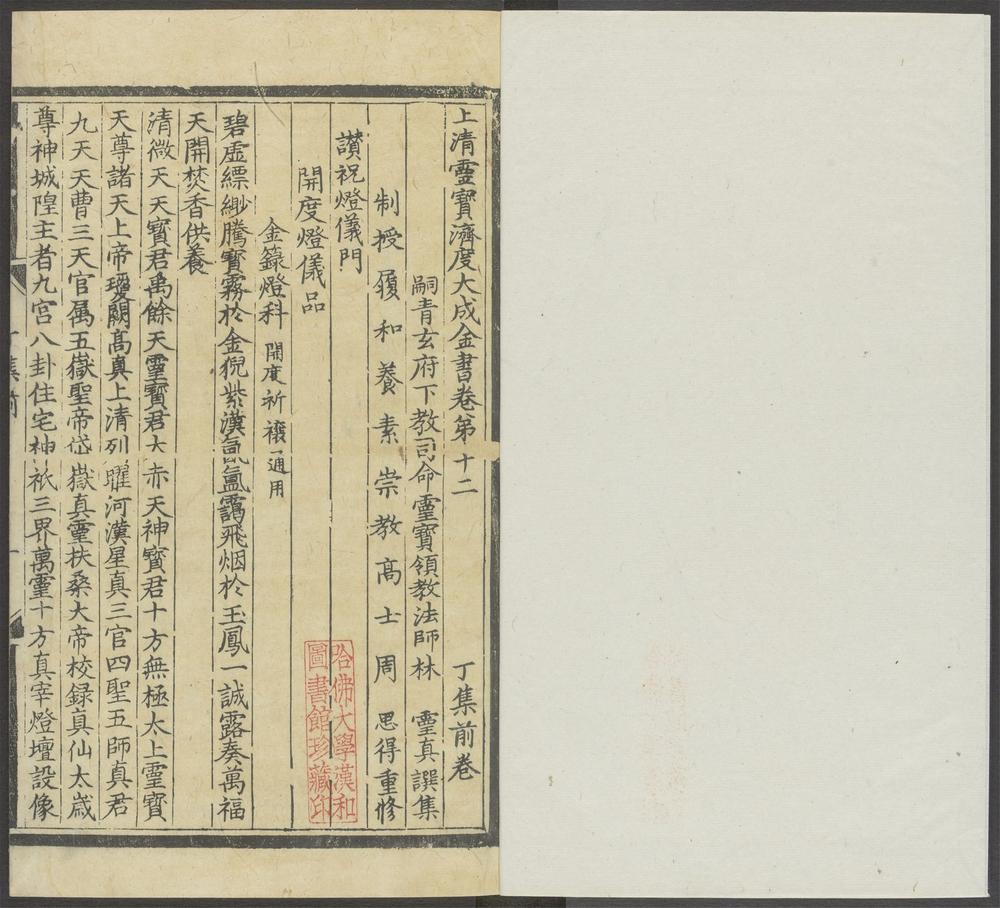 上清靈寶濟度大成金書卷第十二 丁集前卷
嗣青玄府下教司命靈寶領教法師林 靈真譔集
制授履和養素崇教高士周 思得重修
讚祝燈儀門
開度燈儀品
金籙燈科 開度祈禳通用
碧虛縹緲騰寶霧於金猊紫漢氤氳靄飛烟於玉鳳一誠露奏萬福
天開焚香供養
清微天天寶君禹餘天靈寶君大赤天神寶君十方無極太上靈寶
天尊諸天上帝瓊闕高真上清列曜河漢星真三官四聖五師真君
九天天曹三天官属五嶽聖帝岱嶽真靈扶桑大帝校録真仙太歲
尊神城隍主者九宮八卦住宅神祇三界萬靈十方真宰燈壇設像
丁集前
一
哈佛大學漢和
圖書館珍藏印